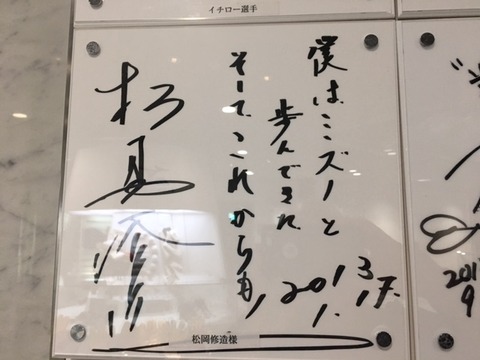 イチロー選手
僕はミズノと
歩んできた
そしてこれからも,
2013
1.17.
松岡修造
松岡修造様
201
9